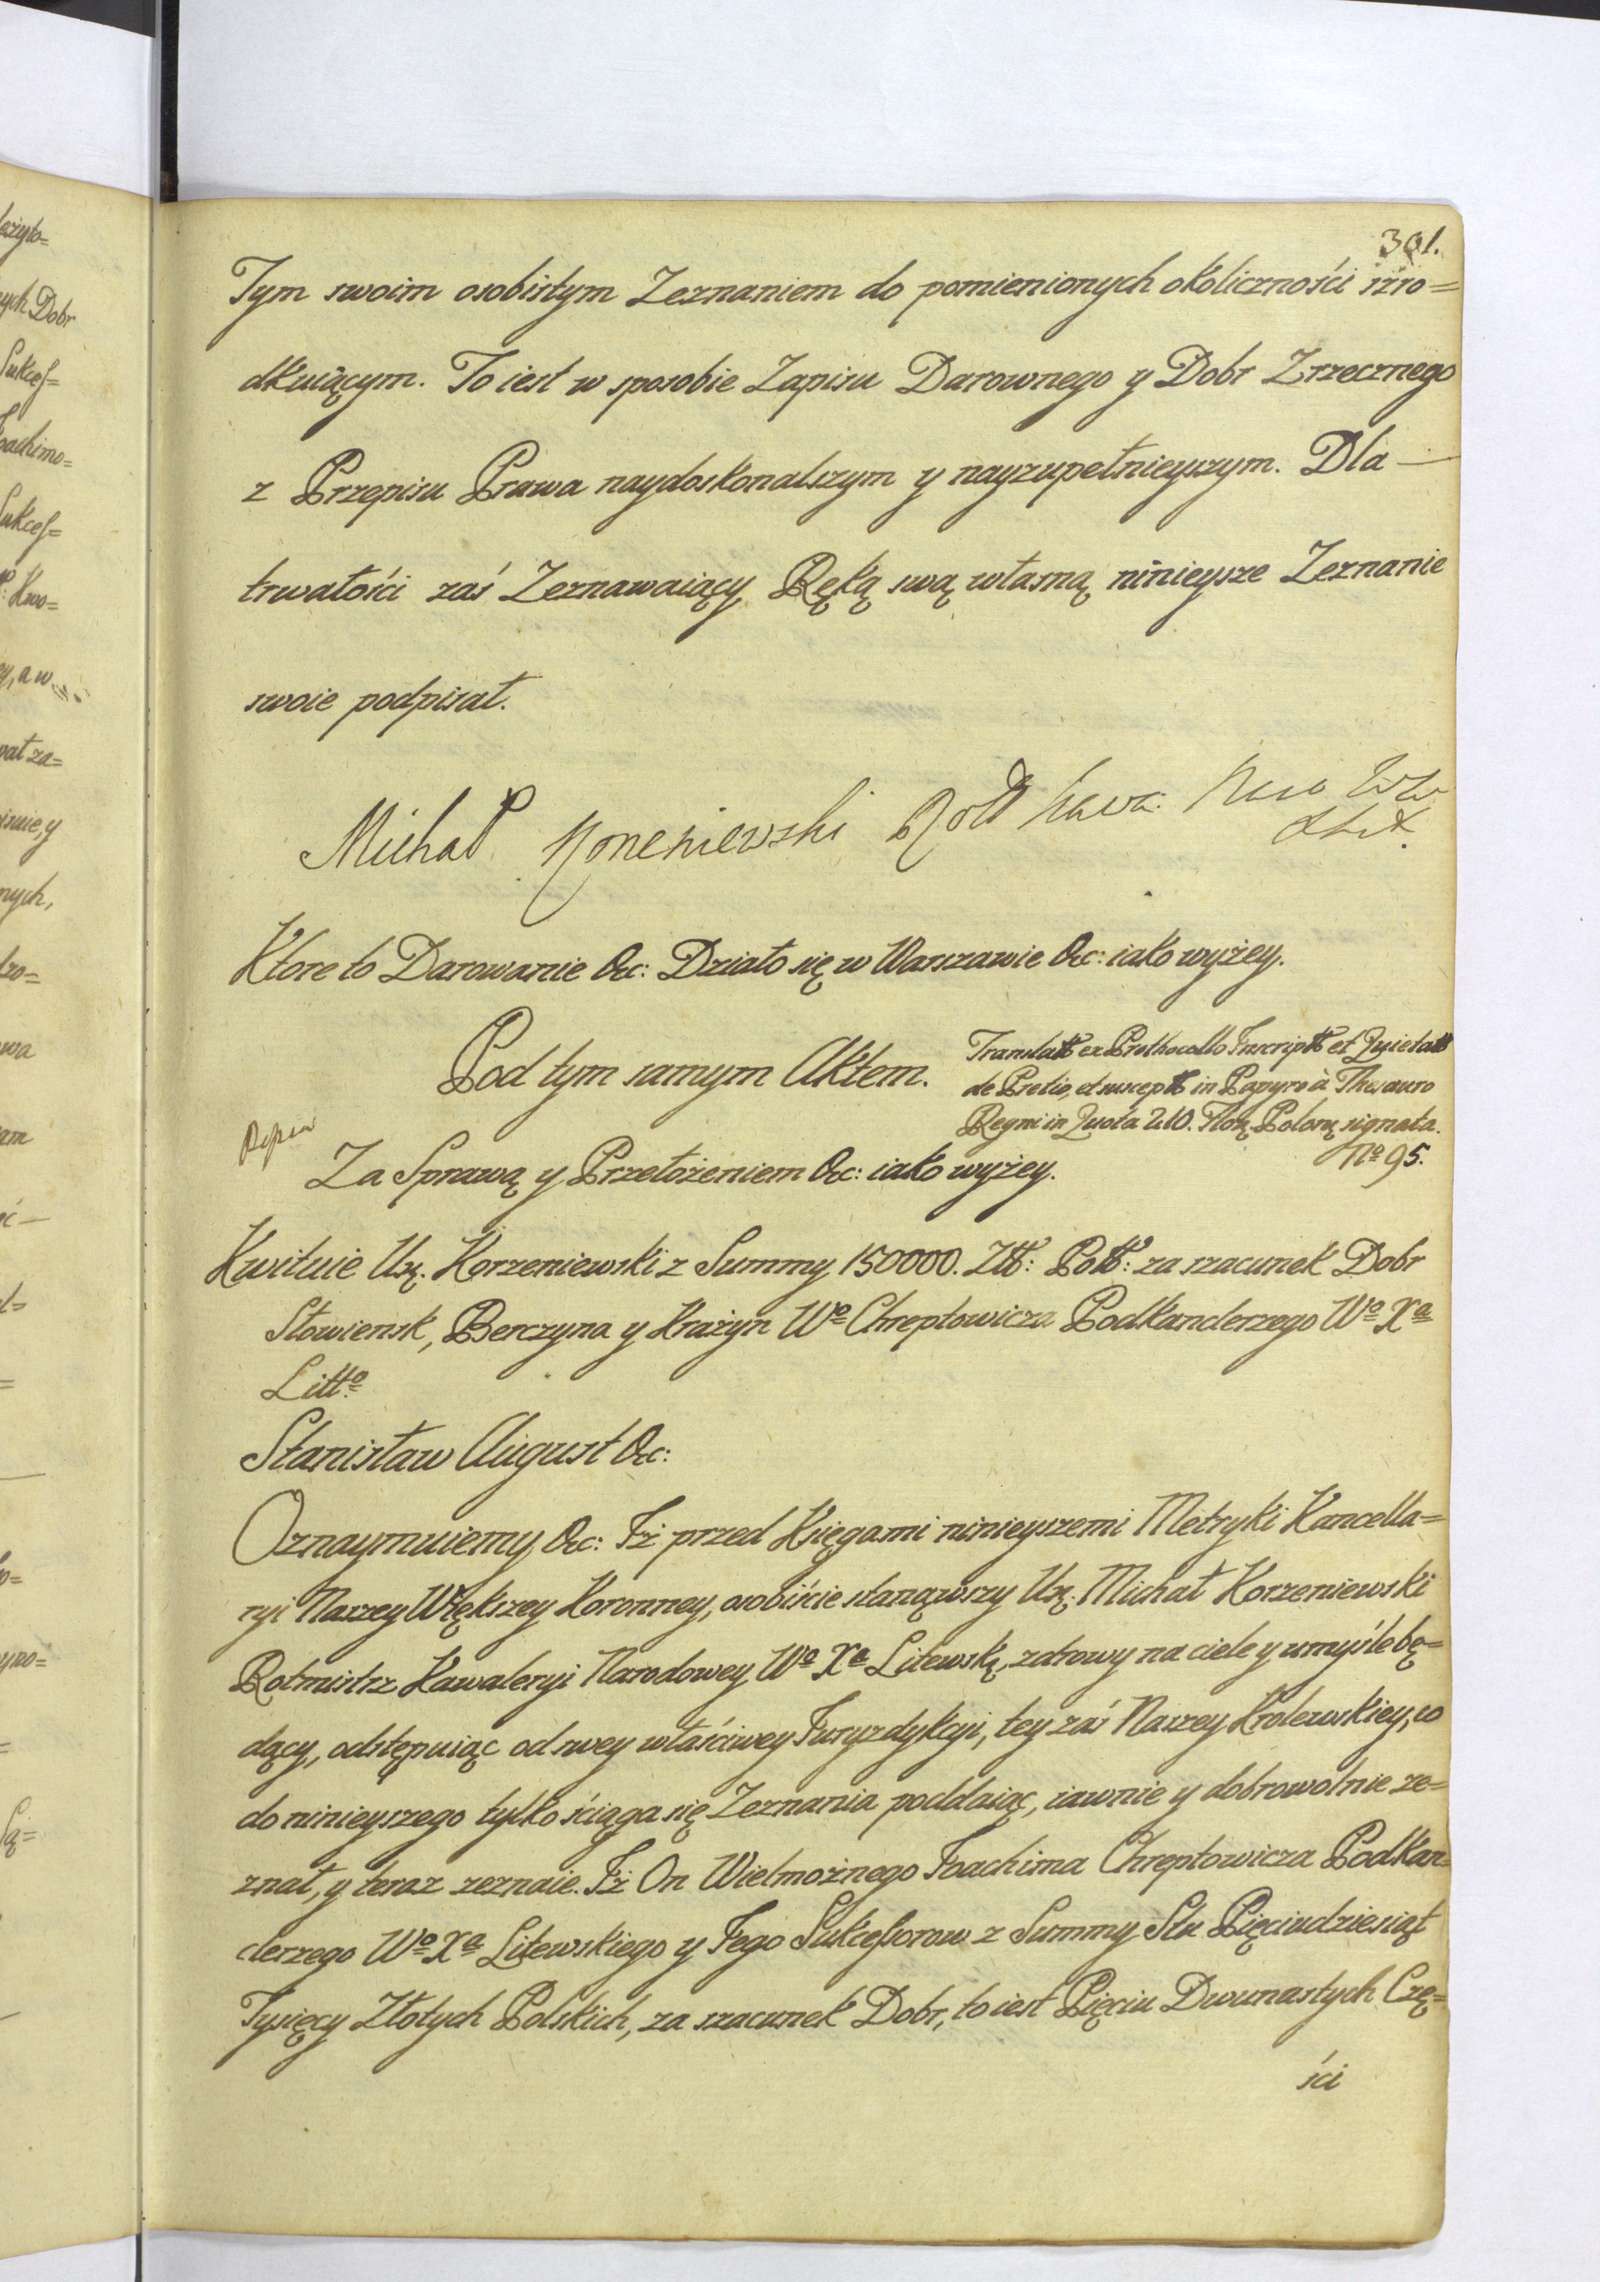 301.
Tym swoim osobistym Zeznaniem do pomienionych okoliczności szro=
dkuiącym. To iest w sposobie Zapisu Darownego y Dobr Zrzecznego
z Przepisu Prawa naydoskonalszym y nayzupełnieyszym. Dla —
trwałości zaś Zeznawaiący Ręką swą własną ninieysze Zeznanie
swoie podpisał.
Michał Korzeniewski Rott Kawa: Naro
Ktore to Darowanie &c: Działo się w Warszawie &c: iako wyżey.
Pod tym samym Aktem.
Translatt ex Prothocollo Inscriptt et Quietatt
de Pretio, et susceptt in Papyro à Thesauro
Regni in Quota 210. Flor. Polon. signata.
No 95.
Za Sprawą y Przełożeniem &c: iako wyżey.
Kwituie Ur. Korzeniewski z Summy 150000. Złł: Poll: za szacunek Dobr
Słowiensk, Berczyna y Krażyn Wo Chreptowicza Podkanclerzego Wo Xa
Litto
Stanisław August &c:
Oznaymuiemy &c: Iż przed Księgami ninieyszemi Metryki Kancella=
ryi Naszey Większey Koronney, osobiście stanąwszy Ur. Michał Korzeniewski
Rotmistrz Kawaleryi Narodowey Wo Xa Litewsk., zdrowy na ciele y umyśle bę=
dący, odstępuiąc od swey właściwey Juryzdykcyi, tey zaś Naszey Krolewskiey, co
do ninieyszego tylko ściąga się Zeznania poddaiąc, iawnie y dobrowolnie ze=
znał, y teraz zeznaie. Iż On Wielmożnego Joachima Chreptowicza Podkan=
clerzego Wo Xa Litewskiego y Jego Sukcessorow z Summy Stu Pięciudziesiąt
Tysięcy Złotych Polskich, za szacunek Dobr, to iest Pięciu Dwunastych Czę=
ści